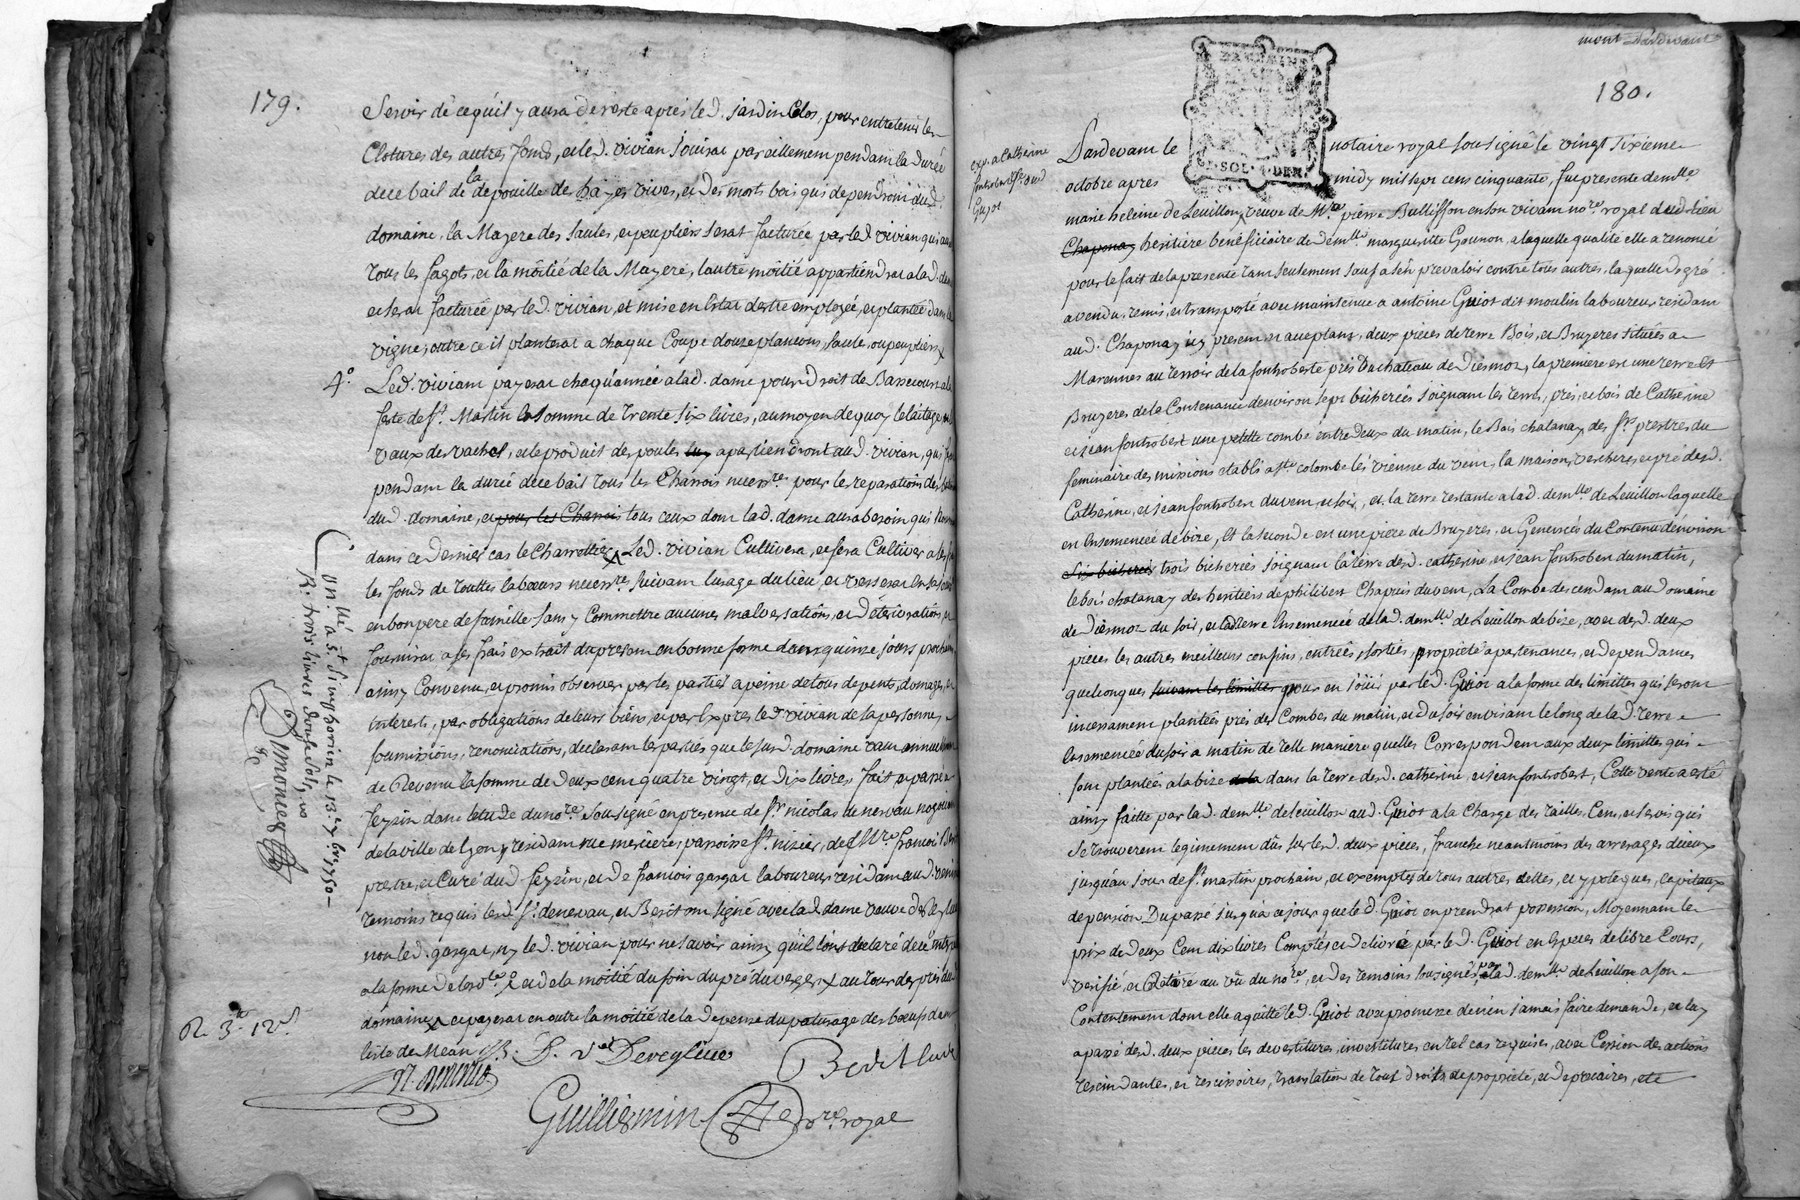 179.
Servir de ce qu'il y aura de reste apres led. jardin Clos, pour entretenir les
Clotures des autres fonds, et led. vivian jouira pareillement pendant la durée
de ce bail de la depouille des hayes vives, et des morts bois qui dependront dud.
domaine, la Mayere des saules, et peupliers serat facturée par led vivian qui aura
tous les fagots, et la moitié de la Mayere, l'autre moitié appartiendra a lad. dame
et serat facturée par led. vivian, et mise en Estat destre employée, et plantée dans la
vigne, outre ce il planterat a chaque Coupe douze plancons, saule, ou peupliers
4° Led. vivian payerat chaqu'année a lad. dame pour droit de Bassecourt a la
feste de st. Martin la somme de trente six livres, au moyen de quoy le laitage, les
vaux des vaches, et le produit des poules apartiendront aud. vivian, qui
pendant la durée de ce bail tous les Charrois necessres. pour les reparations des
dud. domaine, et pour les Charrois tous ceux dont lad. dame aura besoin qui
dans ce dernier cas le Charrottier Led. vivian Cultivera, et fera Cultiver a ses
les fonds de touttes labœurs necessre. suivant lusage du lieu, et verserat en
en bon pere de famille sans y Commettre aucunes malversations, et déteriorations, et
fournirat a ses frais extrait du present en bonne forme dans quinze jours prochains
ainsy Convenu, et promis observer par les parties a peine de tous depents, domages, et
interests, par obligations de leurs biens, et par Exprès led. vivian de sa personne,
soumissions, renonciations, declarant les parties que le susd. domaine vaut annuellement
de Revenu la somme de deux cent quatre vingt, et dix livres, fait et passé a
feyzin dans letude du nore. sousigné en presence de sr. nicolas denervau negotiant
de la ville de Lyon y residant rue merciere paroisse st. nizier, de Mre. francois Berit
prestre, et Curé dud. feyzin, et de francois gargat laboureur residant aud.
temoins requis lesd. sr. denervau, et Berit ont signé avec lad. dame veuve
non led. gargat, ny led. vivian pour ne savoir ainsy qu'il lont declaré de ce
a la forme de lord. et de la moitié du foin du pré du verger au tour des prés dud.
domaine et payerat en outre la moitié de la depense du paturage des bœufs dans
liste de Mean
D. ve. Devegliuo
Berit Curé
Guillermin
nre. royal
R. 3tt 12s.
Onllé a St. Simphorien le 13. 9bre 1750
R. trois livres douze sols,
Simonet
mont Pardevant
180.
exp. a Catherine
fontrobert
Guyot
SOL. 4 DEN.
Pardevant le notaire royal sousigné le vingt sixieme
octobre apres midy mil sept cens cinquante, fut presente demlle.
marie heleine de Leuillon, veuve de Mre. pierre Bullisson en son vivant nore. royal dud. lieu
Chaponay heritiere beneficiaire de demlle. marguerite Gounon, a laquelle qualité elle a renoncé
pour le fait de la presente tant seulement sauf a s'en prevaloir contre tous autres, laquelle de gré
a vendu, remis, et transporté avec maintenue a antoine Guiot dit moulin laboureur residant
aud. Chaponay icy present et acceptant, deux pieces de terre Bois, et Bruyeres situées a
Marennes au terroir de la fontroberte pres du chateau de Diesmoz, la premiere est une terre et
Bruyeres de la Contenance denviron sept bicherées joignant les terres, prés, et bois de Catherine
et jean fontrobert une petite combe entre deux du matin, le Bois chatanay des srs. prestres du
seminaire des missions etabli a ste. colombe les vienne du vent, la maison, verchere, et pré desd.
Catherine, et jean fontrobert du vent, et soir, et la terre restante a lad. demlle. de Leuillon laquelle
est Ensemencée de bize, Et la seconde est une piece de Bruyeres, et Genevrées du Contenu denviron
six bicherées trois bicherées joignant la terre desd. catherine, et jean fontrobert du matin,
le bois chatanay des heritiers de philibert Chaprés du vent, La Combe descendant au Domaine
de Diesmoz du soir, et la terre Ensemencée de lad. demlle. de Leuillon de bize, avec desd. deux
pieces les autres meilleurs confins, entrées, sorties, propriété apartenances, et dependances
quelconques suivant les limittes pour en joüir par led. Guiot a la forme des limittes qui seront
incessament plantées près des Combes du matin, et du soir en visant le long de lad. terre
Ensemencée du soir a matin de telle maniere quelles Correspondent aux deux limittes qui
sont plantées a la bize de la dans la terre desd. catherine, et jean fontrobert, Cette vente a esté
ainsy faitte par lad. demlle. de leuillon aud. Guiot a la Charge des tailles, Cens, et servis qui
se trouverent legitimement dûs sur lesd. deux pieces, franche neantmoins des arrerages diceux
jusqu'au jour de st. martin prochain, et exemptes de tous autres dettes, et ypoteques, capitaux
de pension Du passé jusqu'a ce jour que led. Guiot en prendrat possession, Moyennant le
prix de deux Cent dix livres Comptés et delivré par led. Guiot en Especes de libre Cours,
verifié, et Retiré au vû du nore., et des temoins sousignés par lad. demlle. de Leuillon a son
Contentement dont elle a quitté led. Guiot avec promesse de n'en jamais faire demande, et la y
a passé desd. deux pieces les devestitures, investitures en tel cas requises, avec Cession des actions
rescindantes, et rescissoires, translation de tout droits de propriété, et de precaires, etc